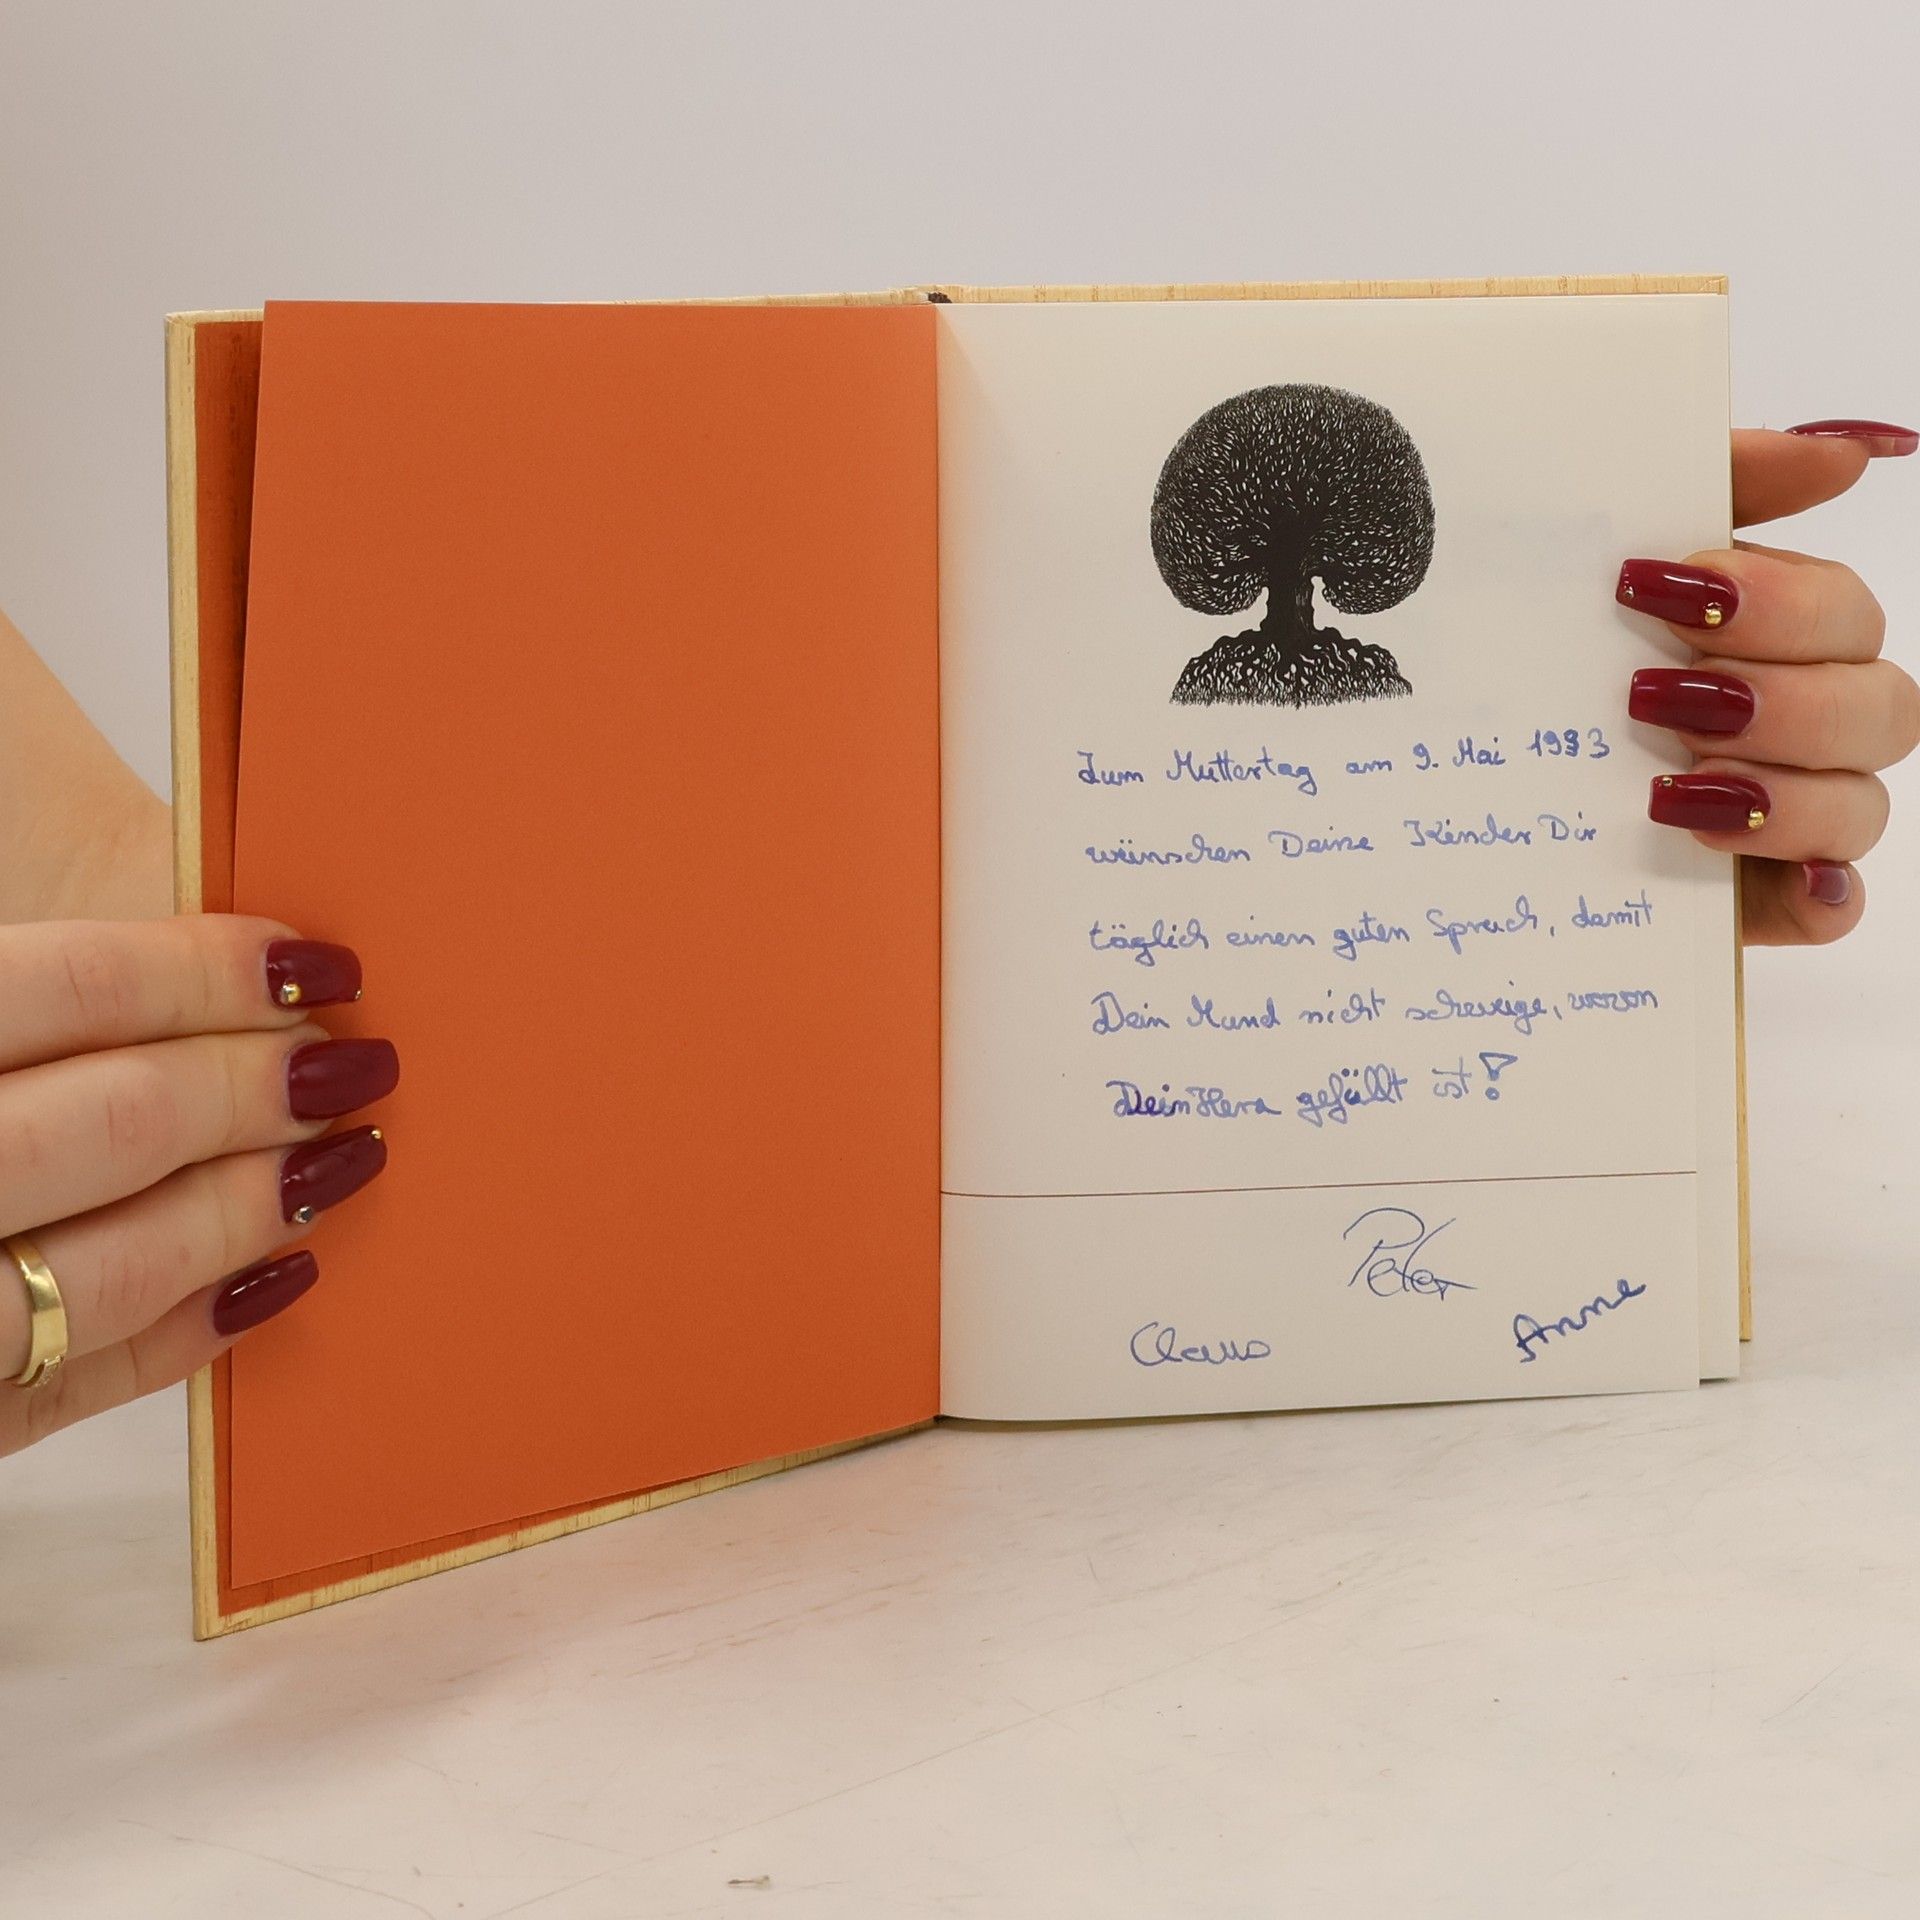 Zum Muttertag am 9. Mai 1993
wünschen Deine Kinder Dir
täglich einen guten Spruch, damit
Dein Mund nicht schweige, wovon
Dein Herz gefüllt ist!
Peter
Anne
Claus